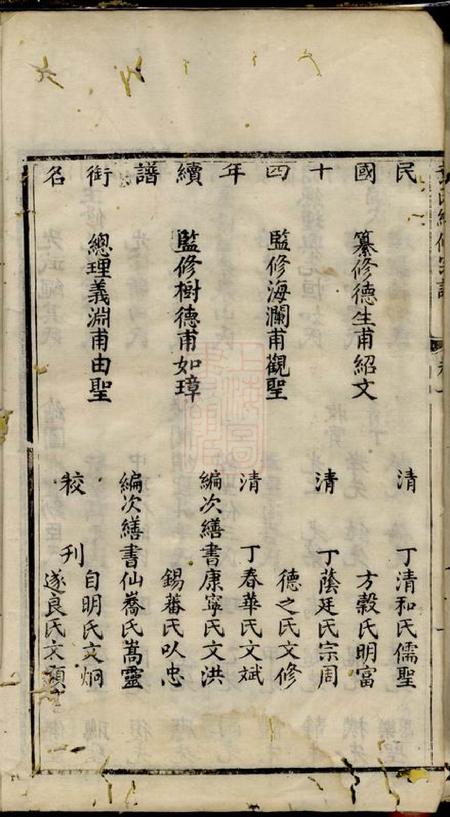 民國十四年續譜銜名
纂修德生甫紹文
監修海瀾甫觀聖
監修樹德甫如璋
總理義淵甫由聖
清丁清和氏儒聖
方穀氏明富
清丁蔭廷氏宗周
德之氏文修
清丁春華氏文斌
編次繕書康寧氏文洪
錫蕃氏以忠
編次繕書仙喬氏嵩靈
校刊自明氏文炯
遂良氏文